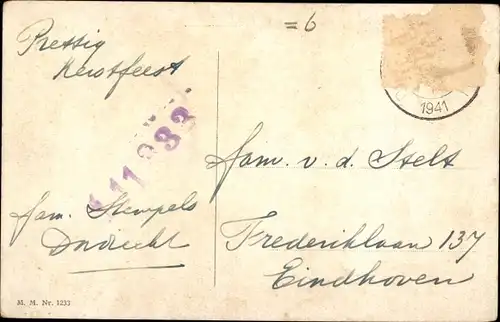 =6
Prettig
Kerstfeest
1941
11 833
fam. v. d. Stelt
fam. Stempels
Dordrecht
Frederiklaan 137
Eindhoven
M. M. Nr. 1233